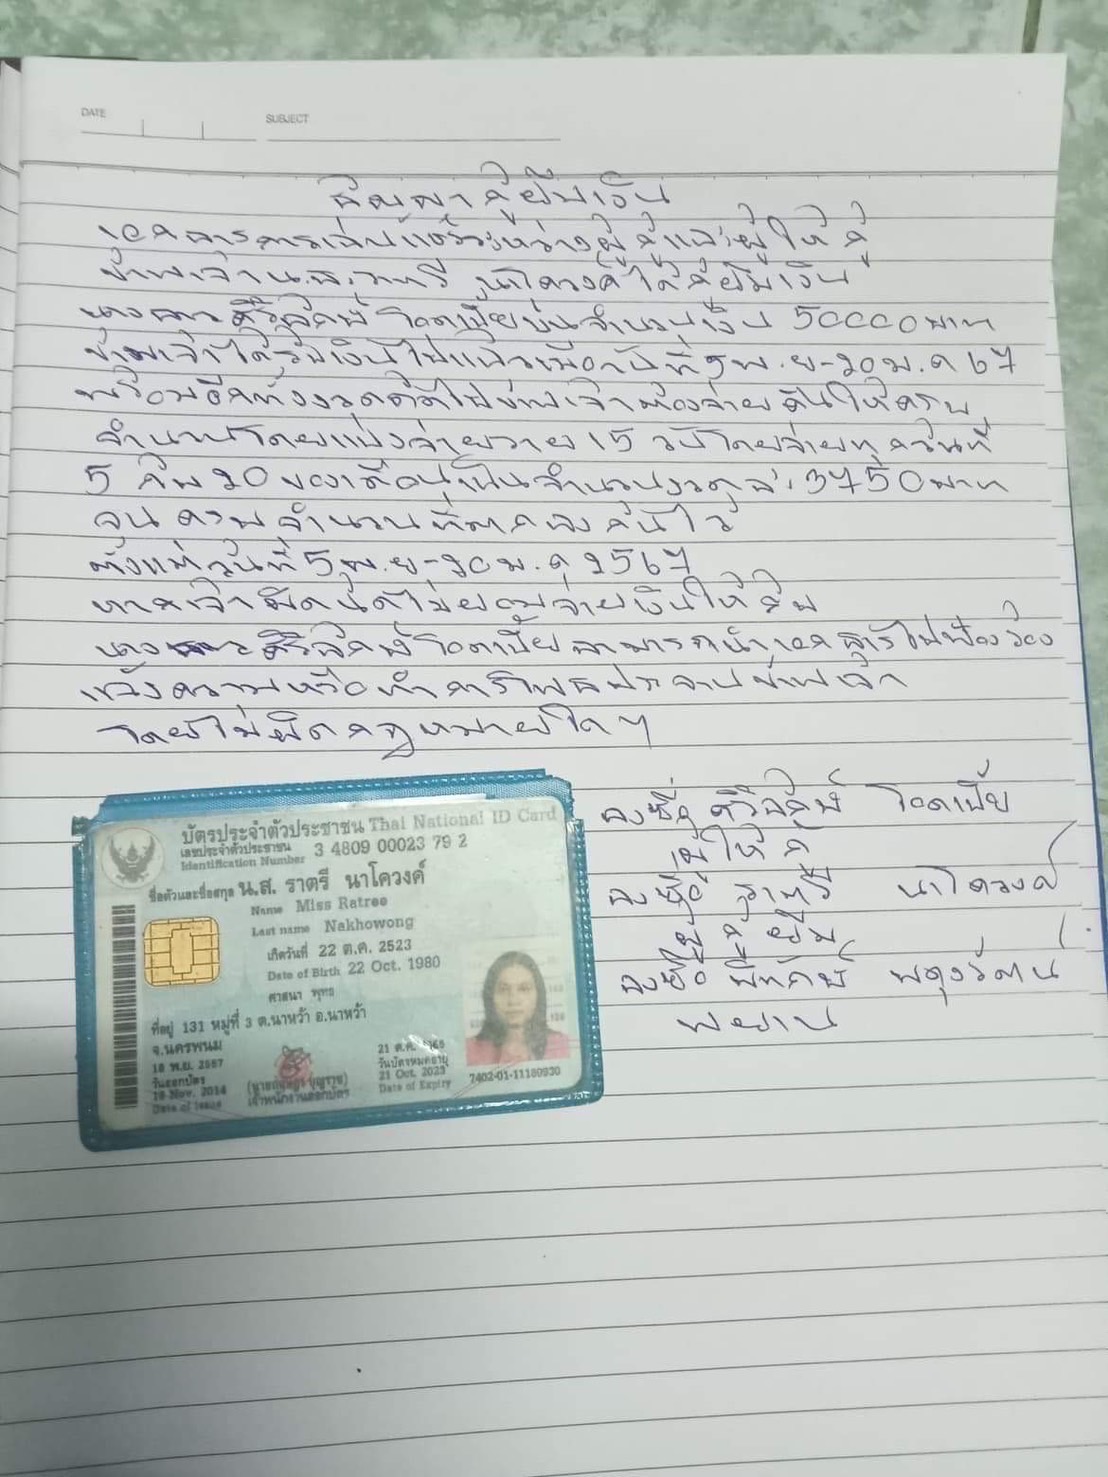 DATE
SUBJECT
สัญญากู้ยืมเงิน
เอกสารการเงินระหว่างผู้กู้และผู้ให้กู้
ข้าพเจ้า น.ส.ราตรี นาโควงค์ได้กู้ยืมเงิน
นางสาวศิริลักษ์ โอดเปี้ย จำนวนเงิน 50000 บาท
ข้าพเจ้าได้รับเงินไปแล้วเมื่อวันที่ 5 พ.ย-20 ม.ค 67
ข้าพเจ้าต้องจ่ายคืนให้ครบ
จำนวนโดยแบ่งจ่ายราย 15 วันโดยจ่ายทุกวันที่
5 กับ 20 ของเดือนเป็นจำนวนงวดละ 3750 บาท
จนครบจำนวนที่ตกลงกันไว้
ตั้งแต่วันที่ 5 พ.ย-20 ม.ค 2567
หากเจ้าผิดนัดไม่ยอมจ่ายเงินให้กับ
นางสาวศิริลักษ์ โอดเปี้ยสามารถนำเอกสารไปฟ้องร้อง
แจ้งความหรือทำการโพสประจานข้าพเจ้า
โดยไม่ผิดกฎหมายใดๆ
ลงชื่อ ศิริลักษ์ โอดเปี้ย
ผู้ให้กู้
ลงชื่อ ราตรี นาโควงค์
ผู้กู้ยืม
ลงชื่อ พิทักษ์ ผดุงรัตน
พยาน
บัตรประจำตัวประชาชน Thai National ID Card
เลขประจำตัวประชาชน 3 4809 00023 79 2
Identification Number
ชื่อตัวและชื่อสกุล น.ส. ราตรี นาโควงค์
Name Miss Ratree
Last name Nakhowong
เกิดวันที่ 22 ต.ค. 2523
Date of Birth 22 Oct. 1980
ศาสนา พุทธ
ที่อยู่ 131 หมู่ที่ 3 ต.นาหว้า อ.นาหว้า
จ.นครพนม
18 พ.ย. 2557
วันออกบัตร
18 Nov. 2014
Date of Issue
เจ้าพนักงานออกบัตร
21 ต.ค. 2566
วันบัตรหมดอายุ
21 Oct. 2023
Date of Expiry
7402-01-11180930